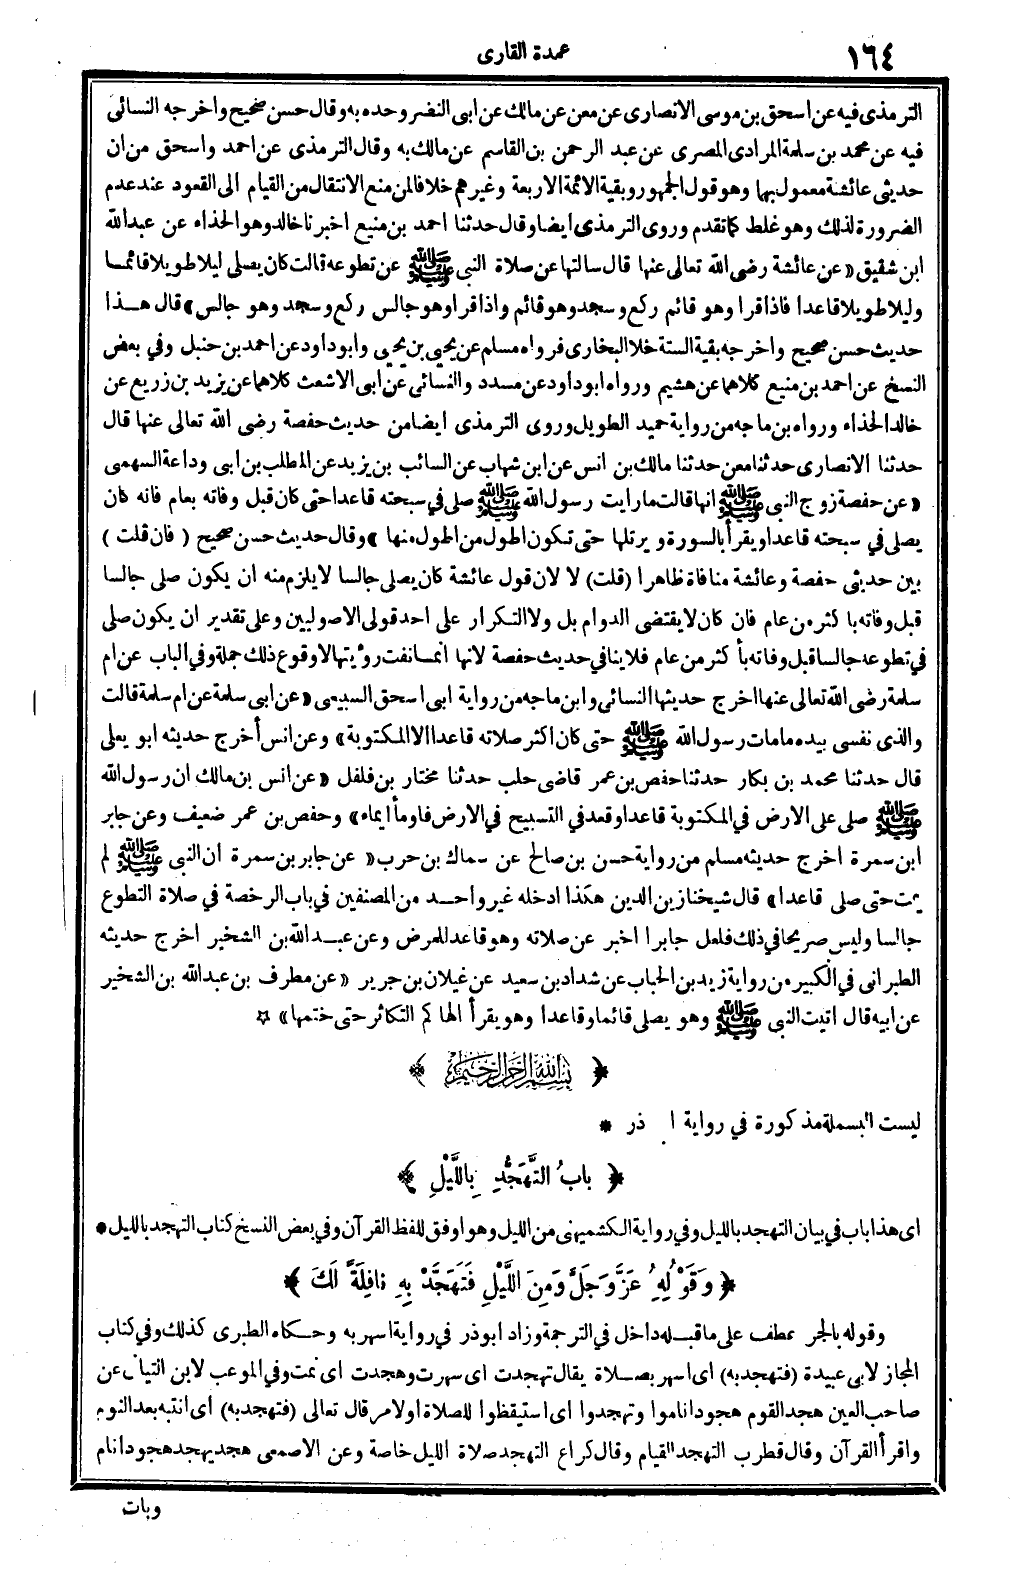 ١٦٤
عمدة القارى
الترمذى فيه عن اسحق بن موسى الانصارى عن معن عن مالك عن ابى النضر وحده به وقال حسن صحيح واخرجه النسائى
فيه عن محمد بن سلمة المرادى المصرى عن عبد الرحمن بن القاسم عن مالك به وقال الترمذى عن احمد واسحق من ان
حديثى عائشة معمول بها وهو قول الجمهور وبقية الائمة الاربعة وغيرهم خلافا لمن منع الانتقال من القيام الى القعود عند عدم
الضرورة لذلك وهو غلط كما تقدم وروى الترمذى ايضا وقال حدثنا احمد بن منيع اخبرنا خالد وهو الحذاء عن عبدالله
ابن شقيق «عن عائشة رضى الله تعالى عنها قال سالتها عن صلاة النبى ﷺ عن تطوعه قالت كان يصلى ليلا طويلا قائما
وليلا طويلا قاعدا فاذا قرا وهو قائم ركع وسجد وهو قائم واذا قرا وهو جالس ركع وسجد وهو جالس» قال هذا
حديث حسن صحيح واخرجه بقية الستة خلا البخارى فرواه مسلم عن يحيى بن يحيى وابو داود عن احمد بن حنبل وفي بعض
النسخ عن احمد بن منيع كلاهما عن هشيم ورواه ابو داود عن مسدد والنسائى عن ابى الاشعث كلاهما عن يزيد بن زريع عن
خالد الحذاء ورواه بن ماجه من رواية حميد الطويل وروى الترمذى ايضا من حديث حفصة رضى الله تعالى عنها قال
حدثنا الانصارى حدثنا معن حدثنا مالك بن انس عن ابن شهاب عن السائب بن يزيد عن المطلب بن ابى وداعة السهمى
«عن حفصة زوج النبى ﷺ انها قالت ما رايت رسول الله ﷺ صلى في سبحته قاعدا حتى كان قبل وفاته بعام فانه كان
يصلى في سبحته قاعدا ويقرأ بالسورة ويرتلها حتى تكون اطول من اطول منها» وقال حديث حسن صحيح (فان قلت)
بين حديثى حفصة وعائشة منافاة ظاهرا (قلت) لا لان قول عائشة كان يصلى جالسا لا يلزم منه ان يكون صلى جالسا
قبل وفاته باكثر من عام فان كان لا يقتضى الدوام بل ولا التكرار على احد قولى الاصوليين وعلى تقدير ان يكون صلى
في تطوعه جالسا قبل وفاته بأكثر من عام فلا ينافي حديث حفصة لانها انما نفت رؤيتها لا وقوع ذلك جملة وفي الباب عن ام
سلمة رضى الله تعالى عنها اخرج حديثها النسائى وابن ماجه من رواية ابى اسحق السبيعى «عن ابى سلمة عن ام سلمة قالت
والذى نفسى بيده ما مات رسول الله ﷺ حتى كان اكثر صلاته قاعدا الا المكتوبة» وعن انس أخرج حديثه ابو يعلى
قال حدثنا محمد بن بكار حدثنا حفص بن عمر قاضى حلب حدثنا مختار بن فلفل «عن انس بن مالك ان رسول الله
ﷺ صلى على الارض في المكتوبة قاعدا وقعد في التسبيح في الارض فاومأ ايماء» وحفص بن عمر ضعيف وعن جابر
ابن سمرة اخرج حديثه مسلم من رواية حسن بن صالح عن سماك بن حرب «عن جابر بن سمرة ان النبى ﷺ لم
يمت حتى صلى قاعدا» قال شيخنا زين الدين هكذا ادخله غير واحد من المصنفين في باب الرخصة في صلاة التطوع
جالسا وليس صريحا في ذلك فلعل جابرا اخبر عن صلاته وهو قاعد للمرض وعن عبد الله بن الشخير اخرج حديثه
الطبرانى في الكبير من رواية زيد بن الحباب عن شداد بن سعيد عن غيلان بن جرير «عن مطرف بن عبدالله بن الشخير
عن ابيه قال اتيت النبى ﷺ وهو يصلى قائما وقاعدا وهو يقرأ الهاكم التكاثر حتى ختمها» ✩
﴿ بسم الله الرحمن الرحيم ﴾
ليست البسملة مذكورة في رواية ا ذر *
﴿ بابُ التَّهَجُّدِ بِاللَّيْلِ ﴾
اى هذا باب في بيان التهجد بالليل وفي رواية الكشميهنى من الليل وهو اوفق للفظ القرآن وفي بعض النسخ كتاب التهجد بالليل *
﴿ وَقَوْلِهِ عَزَّ وَجَلَّ وَمِنَ اللَّيْلِ فَتَهَجَّدْ بِهِ نافِلَةً لَكَ ﴾
وقوله بالجر عطف على ما قبله داخل في الترجمة وزاد ابو ذر في رواية اسهر به وحكاه الطبرى كذلك وفي كتاب
المجاز لابى عبيدة (فتهجد به) اى اسهر بصلاة يقال تهجدت اى سهرت وهجدت اى نمت وفي الموعب لابن التيان عن
صاحب العين هجد القوم هجودا ناموا وتهجدوا اى استيقظوا للصلاة او لامر قال تعالى (فتهجد به) اى انتبه بعد النوم
واقرأ القرآن وقال قطرب التهجد القيام وقال كراع التهجد صلاة الليل خاصة وعن الاصمعى هجد يهجد هجودا نام
وبات